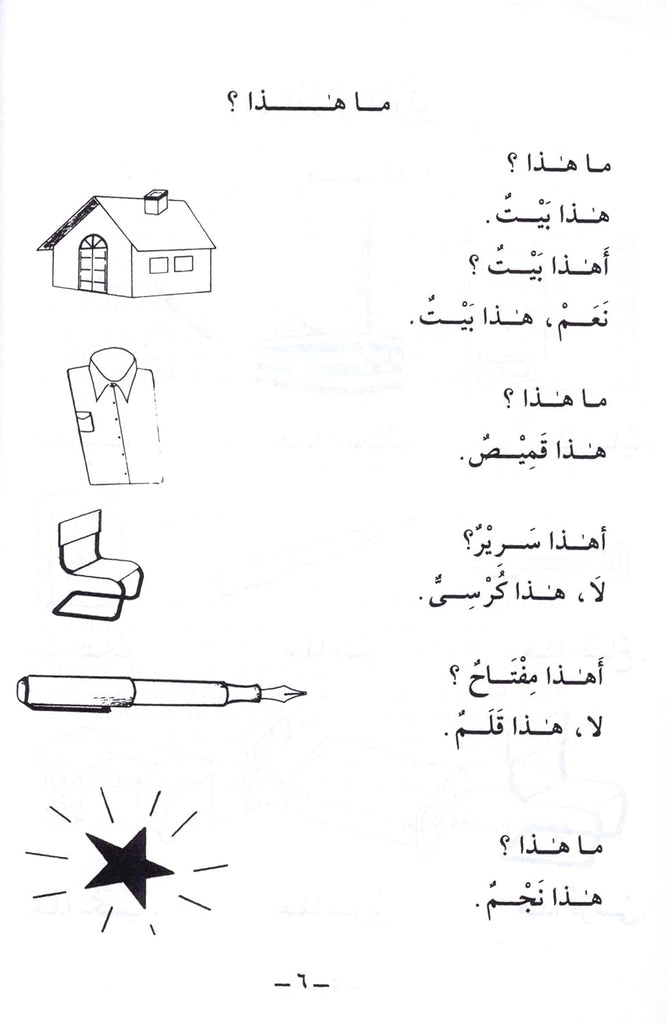 ما هـٰـذا ؟
ما هٰذا ؟
هٰذا بَيْتٌ.
أَهٰذا بَيْتٌ ؟
نَعَمْ، هٰذا بَيْتٌ.
ما هٰذا ؟
هٰذا قَمِيْصٌ.
أهٰذا سَرِيْرٌ؟
لَا، هٰذا كُرْسِىٌّ.
أَهٰذا مِفْتَاحٌ ؟
لا، هٰذا قَلَمٌ.
ما هٰذا ؟
هٰذا نَجْمٌ.
ـ ٦ ـ